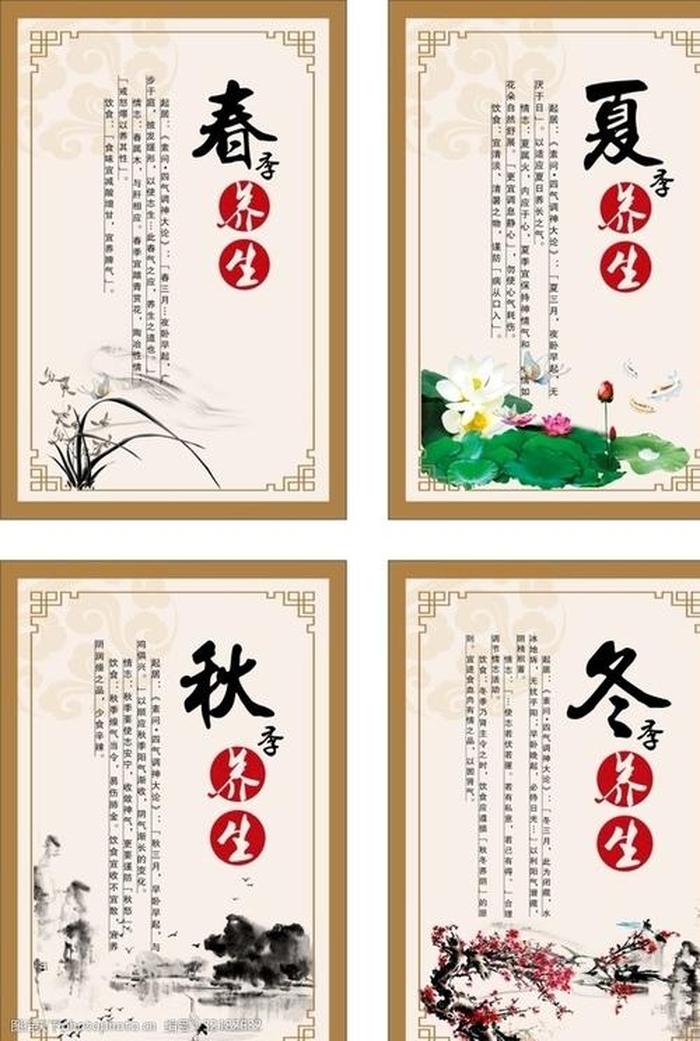 春季养生
起居：《素问·四气调神大论》：「春三月…夜卧早起，广
步于庭，被发缓形，以使志生…此春气之应，养生之道也。」
情志：春属木，与肝相应。春季宜踏青赏花，陶冶性情，
「戒怒曝以养其性」。
饮食：「食味宜减酸增甘，宜养脾气」。
夏季养生
起居：《素问·四气调神大论》：「夏三月，夜卧早起，无
厌于日」。以适应夏日养长之气。
情志：夏属火，内应于心，夏季宜保持神情气和
情如
花朵自然舒展。「更宜调息静心」，勿使心气耗伤。
饮食：宜清淡、清暑之物，谨防「病从口入」。
秋季养生
起居：《素问·四气调神大论》：「秋三月，早卧早起，与
鸡俱兴。」以顺应秋季阳气渐收，阴气渐长的变化。
情志：秋季要使志安宁，收敛神气，更要谨防「秋愁」。
饮食：秋季燥气当令，易伤肺金。饮食宜收不宜散，宜养
阴润燥之品，少食辛辣。
冬季养生
起居：《素问·四气调神大论》：「冬三月，此为闭藏，水
冰地坼，无扰乎阳；早卧晚起，必待日光…」以利阳气潜藏，
阴精积蓄。
情志：「…使志若伏若匿。若有私意，若已有得。」合理
调节情志活动。
饮食：冬季乃肾主令之时，饮食应遵循「秋冬养阴」的原
则。宜进食血肉有情之品，以固肾气。